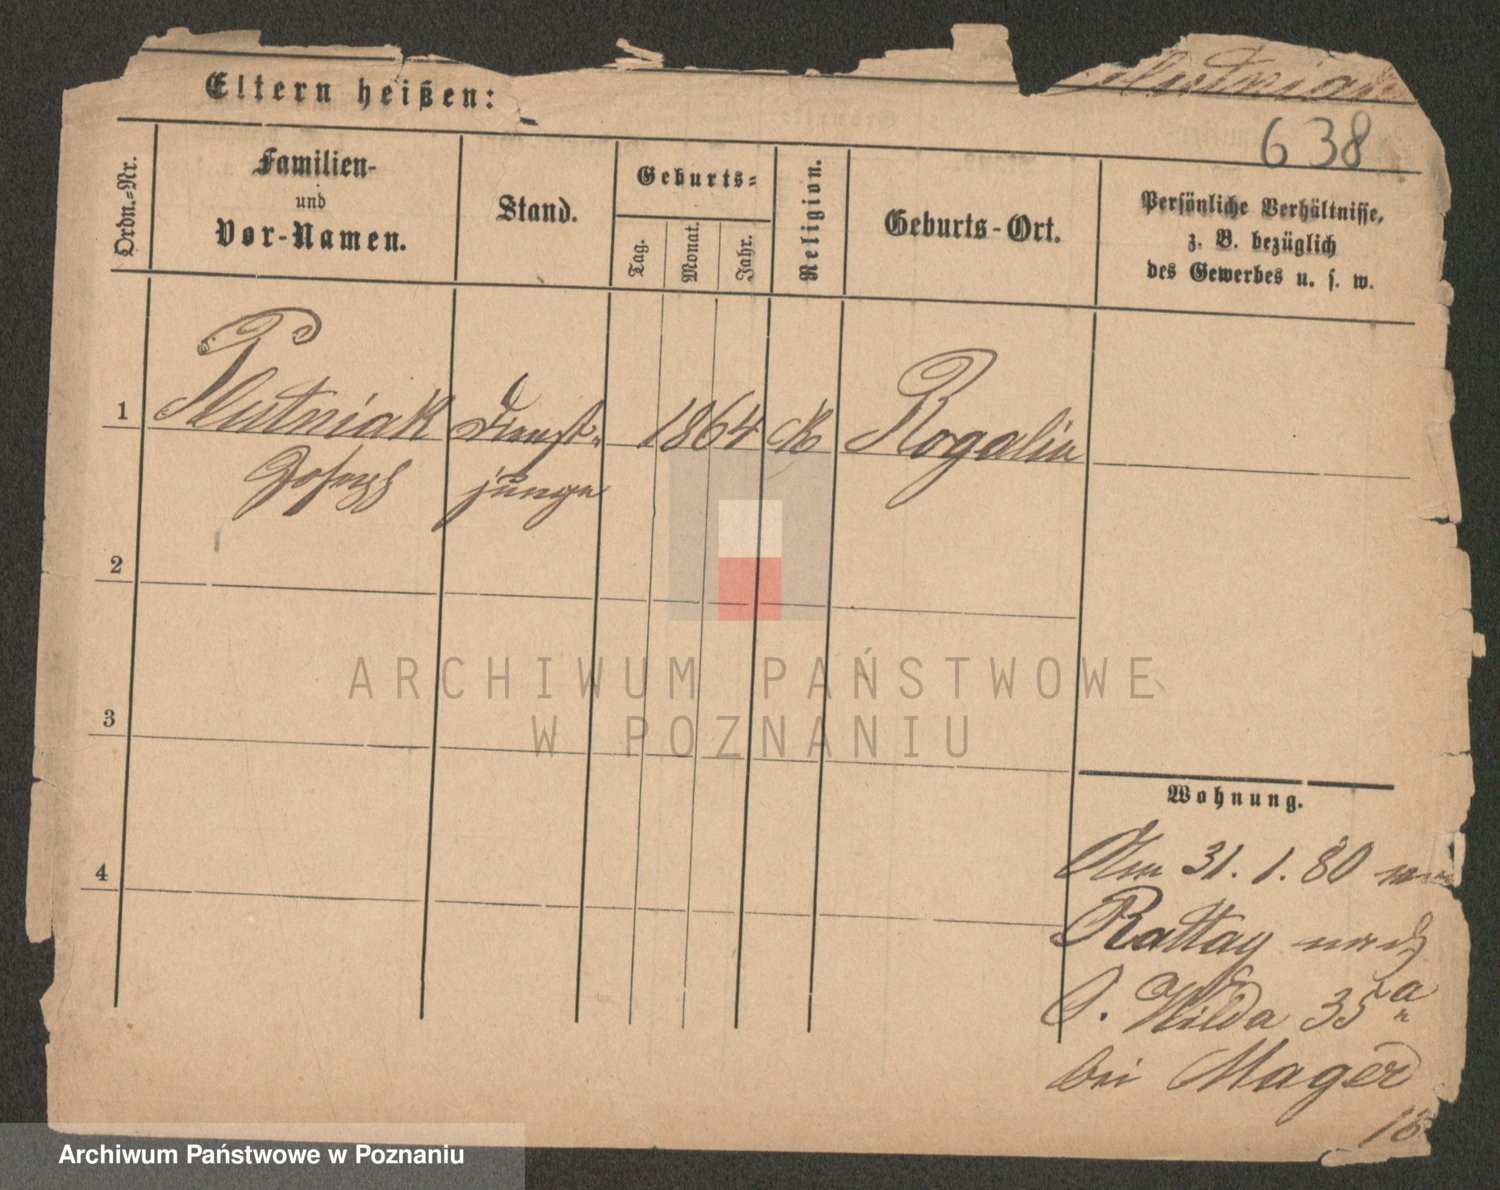 Plutniak
638
Eltern heißen:
Ordn.-Nr.
Familien-
und
Vor-Namen.
Stand.
Geburts-
Tag.
Monat.
Jahr.
Religion.
Geburts-Ort.
Persönliche Verhältnisse,
z. B. bezüglich
des Gewerbes u. s. w.
1 Plutniak Dienst- 1864 K Rogalin
Joseph junge
2
3
4
Wohnung.
Am 31.1.80 von
Rattay nach
O. Wilda 35a
bei Mager
16
ARCHIWUM PAŃSTWOWE
W POZNANIU
Archiwum Państwowe w Poznaniu